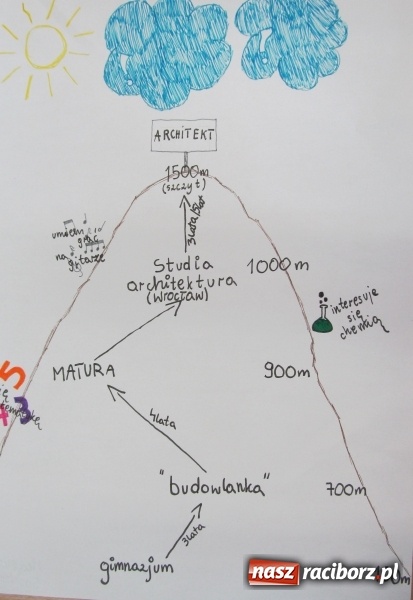 ARCHITEKT
1500m
(szczyt)
3lata/5lat
umiem
grać
na
gitarze
Studia
architektura
(WROCŁAW)
1000m
interesuję
się
chemią
5
MATURA
900m
się
3
4lata
"budowlanka"
700m
3lata
gimnazjum
0m
nasz raciborz.pl